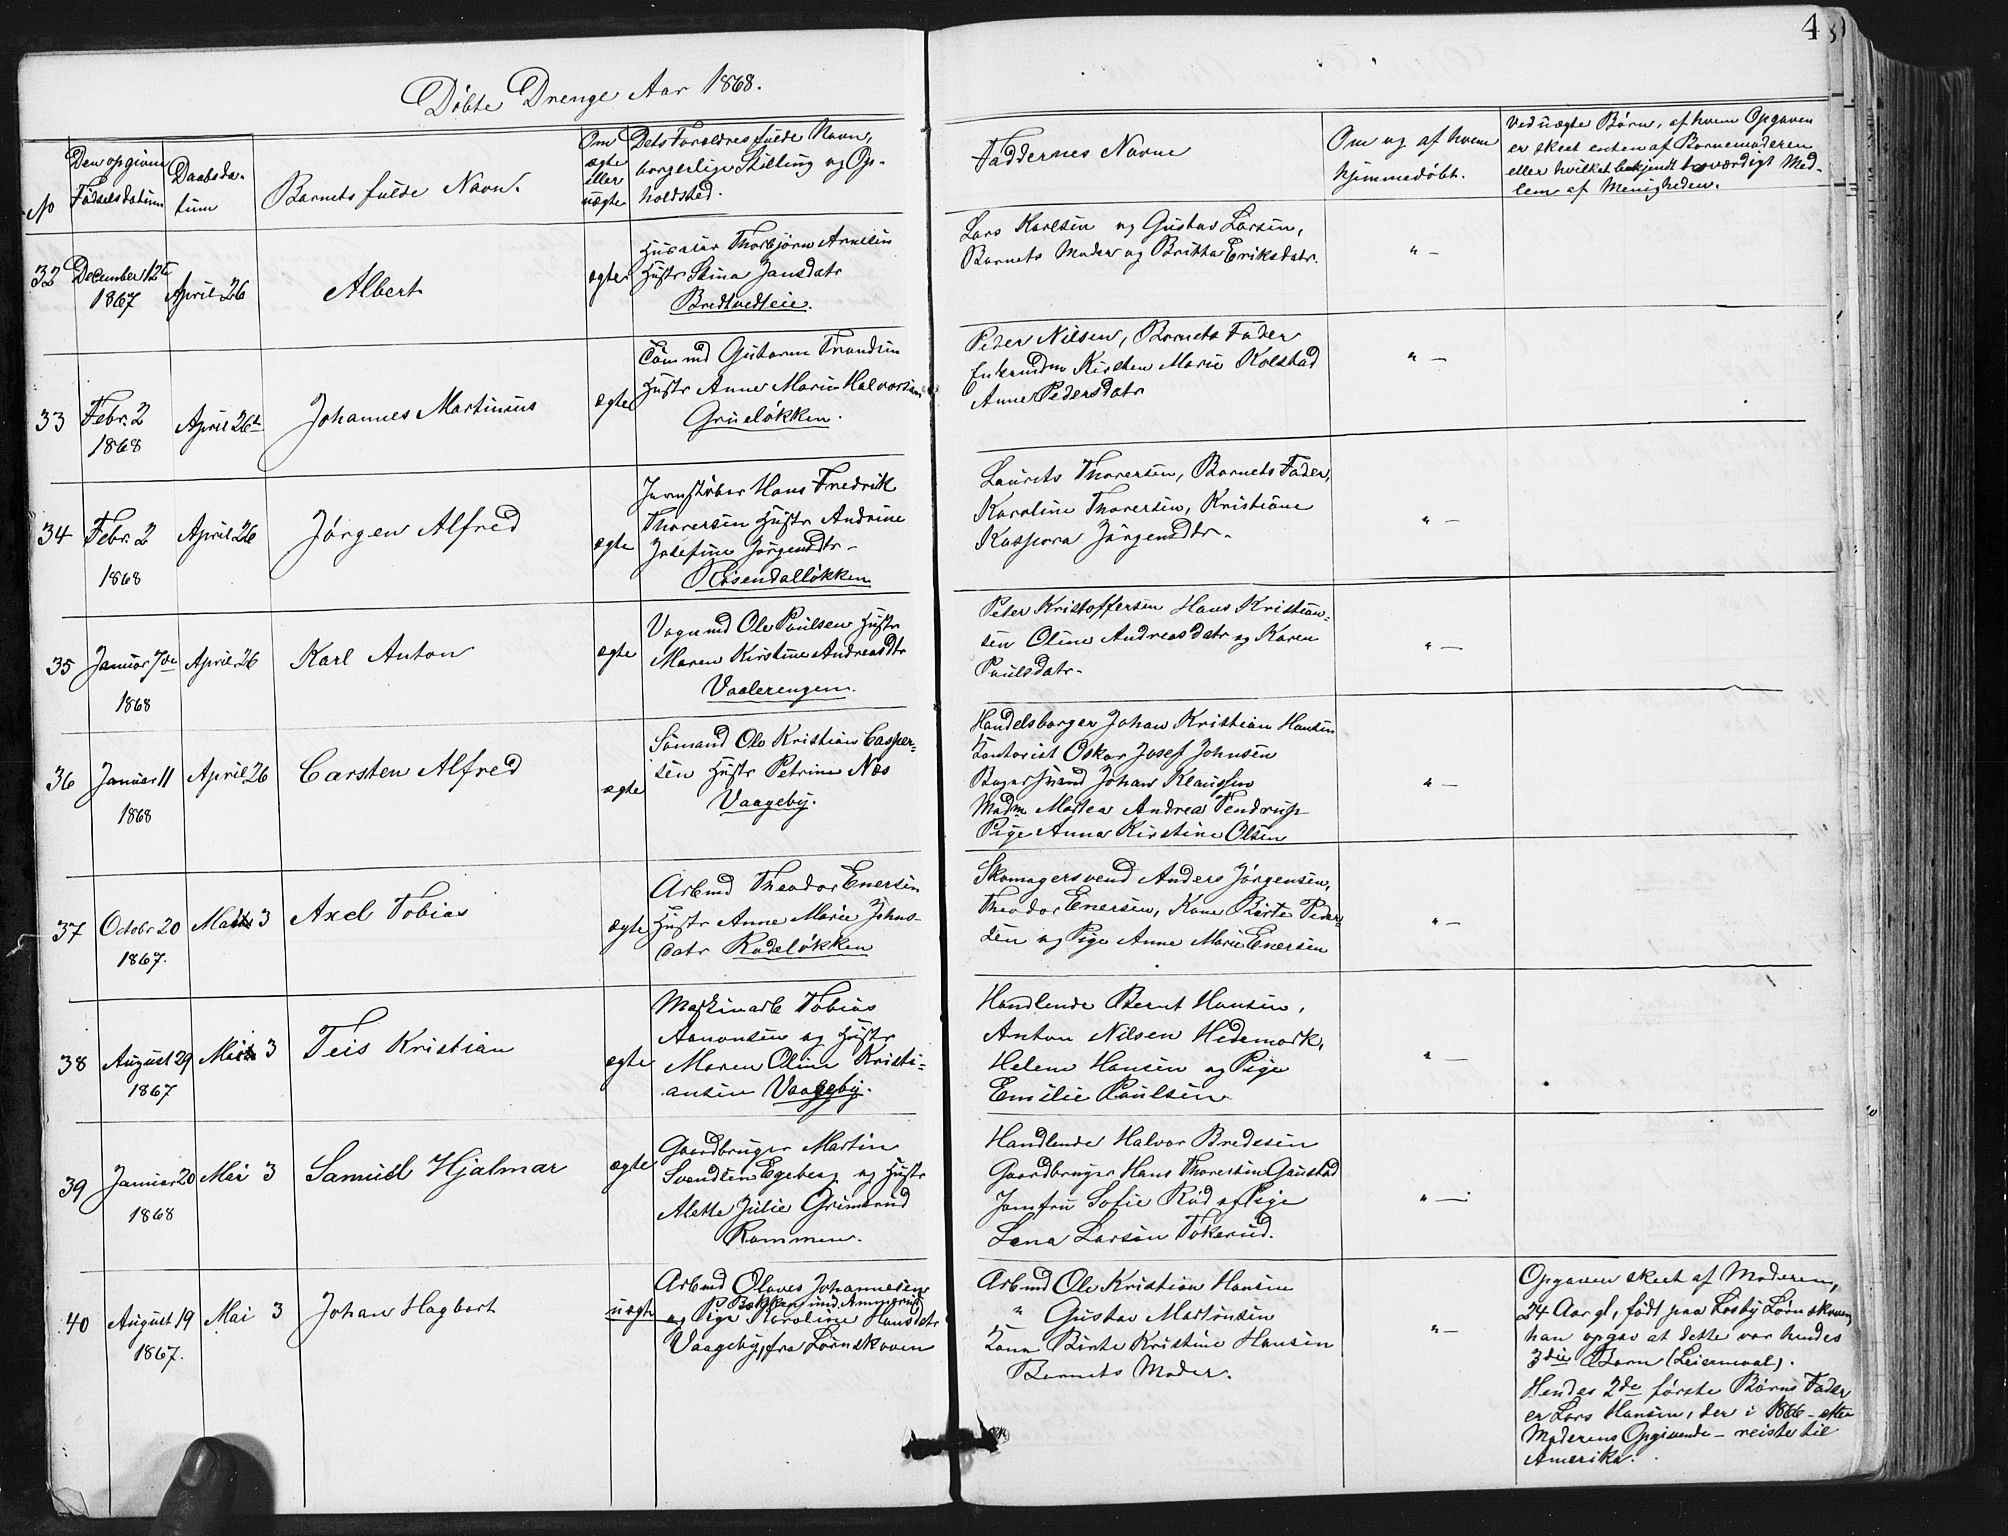 4
Döbte Drenge Aar 1868.
No
Den opgivne
Födselsdatum
Daabsda-
tum
Barnets fulde Navn.
Om
ægte
eller
uægte
Dets Forældres fulde Navn,
borgerlige Stilling og Op-
holdsted.
Faddernes Navne
Om og af hvem
hjemmedöbt.
Ved uægte Börn, af hvem Opgaven
er skeet enten af Barnemoderen
eller hvilket bekjendt troværdigt Med-
lem af Menigheden.
32
December 12te
1867
April 26
Albert
ægte
Thorbjörn Arnesen
Hustr Stina Jansdatr
Bredtvedteie.
Lars Karlsen og Gustav Larsen,
Barnets Moder og Britta Eriksdatr.
" –
33
Febr. 2
1868
April 26t
Johannes Martinius
ægte
Tömmd Guttorm Trondsen
Hustr Anne Marie Halvorsen
Grüelökken.
Peder Nilsen, Barnets Fader
Enkemdm Kirsten Marie Kolstad
Anne Pedersdatr
" –
34
Febr. 2
1868
April 26
Jörgen Alfred
ægte
Jernstöber Hans Fredrik
Thoresen Hustr Andrine
Josefine Jörgensdtr –
Rosendallökken
Laurits Thoresen, Barnets Fader,
Karoline Thoresen, Kristiane
Kaspara Jörgensdtr.
" –
35
Januar 7de
1868
April 26
Karl Anton
ægte
Vognmd Ole Paulsen Hustr
Maren Kirstine Andreasdtr
Vaalerengen.
Peter Kristoffersen Hans Kristian-
sen Oline Andreasdatr og Karen
Paulsdatr.
" –
36
Januar 11
1868
April 26
Carsten Alfred
ægte
Sömand Ole Kristian Casper-
sen Hustr Petrine Næs
Vaageby.
Handelsborger Johan Kristian Hansen
Kontorist Oskar Josef Johnsen
Bager Johan Klaussen
Madm Martea Andrea Tendrup
Pige Anna Kirstine Olsen
" –
37
Octobr 20
1867.
Mai 3
Axel Tobias
ægte
Arbmd Theodor Enersen
Hustr Anne Marie Johns-
datr Rodelökken
Skomagersvend Anders Jörgensen,
Theodor Enersen, Kone Birte Peder-
sen og Pige Anne Marie Enersen
" –
38
August 29
1867
Mai 3
Teis Kristian
ægte
Maskinarb Tobias
Aanonsen og Hustr
Maren Oline Kristi-
ansen Vaageby.
Handlende Bernt Hansen,
Anton Nilsen Hedemark,
Helene Hansen og Pige
Emilie Paulsen
" –
39
Januar 20
1868
Mai 3
Samuel Hjalmar
ægte
Gaardbruger Martin
Svendsen Egeberg og Hustr
Alette Julie Grimsrud
Rommen.
Handlende Halvor Bredesen
Gaardbruger Hans Thoresen Gaustad
Jomfru Sofie Rud og Pige
Lena Larsen Tokerud.
" –
40
August 19
1867.
Mai 3
Johan Hagbart
uægte
Arbmd Olaves Johannesen
Bakken und. Ammerud
og Pige Karoline Hansdatr
Vaageby, fra Lörnskoven
Arbmd Ole Kristian Hansen
" Gustav Martinsen
Kone Birte Kristine Hansen
Barnets Moder.
" –
Opgaven skeet af Moderen,
24 Aar gl, födt paa Losby Lörnskoven
han opgav at dette var hendes
3die Barn (Leiermaal).
Hendes 2de förste Börns Fader
er Lars Hansen, der i 1866 – efter
Moderens Opgivende – reiste til
Amerika.